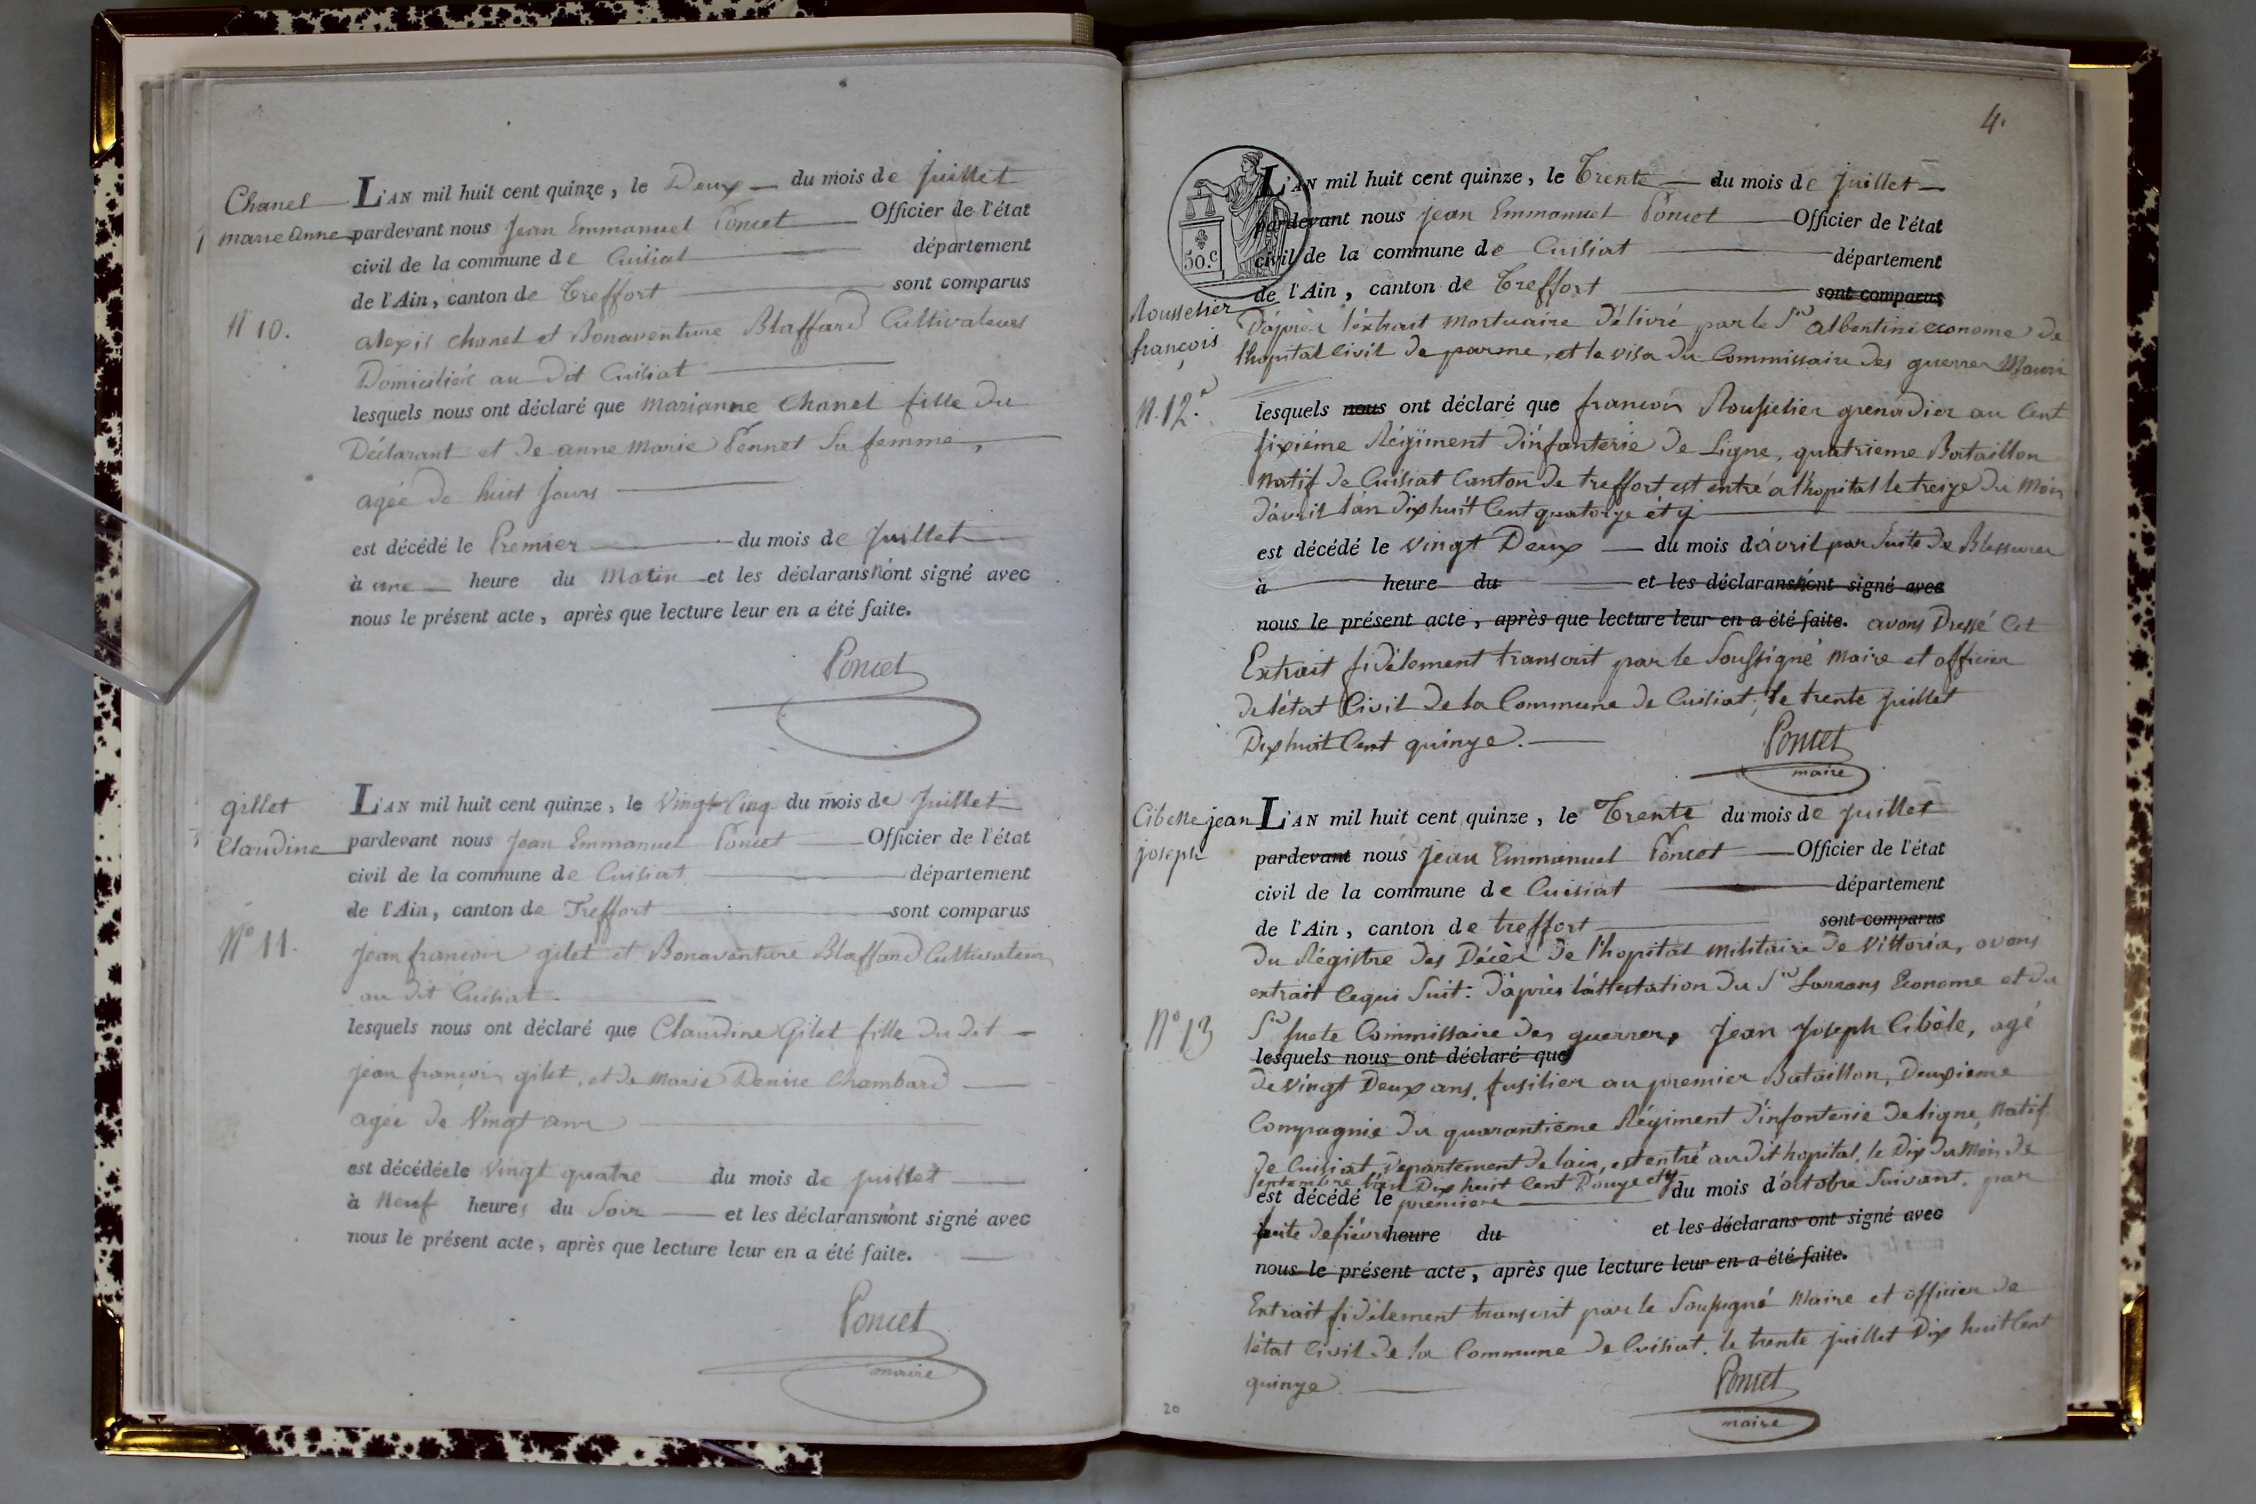 Chanel
marie anne
N° 10.
L'AN mil huit cent quinze, le Deux du mois de Juillet
pardevant nous Jean Emmanuel Poncet Officier de l'état
civil de la commune de Cuisiat département
de l'Ain, canton de Treffort sont comparus
alexis chanel et Bonaventure Blaffard Cultivateurs
Domiciliés au dit Cuisiat
lesquels nous ont déclaré que marianne Chanel fille du
Déclarant et de anne marie Pennet sa femme,
agée de huit jours
est décédé le Premier du mois de Juillet
à une heure du Matin et les déclarans n'ont signé avec
nous le présent acte, après que lecture leur en a été faite.
Poncet
gillet
Claudine
N° 11.
L'AN mil huit cent quinze, le Vingt Cinq du mois de Juillet
pardevant nous Jean Emmanuel Poncet Officier de l'état
civil de la commune de Cuisiat département
de l'Ain, canton de Treffort sont comparus
jean françois gilet et Bonaventure Blaffard Cultivateurs
au dit Cuisiat
lesquels nous ont déclaré que Claudine Gilet fille du dit
jean françois gilet, et de marie Denise Chambard
agée de Vingt ans
est décédée le vingt quatre du mois de juillet
à Neuf heures du Soir et les déclarans n'ont signé avec
nous le présent acte, après que lecture leur en a été faite.
Poncet
maire
4.
50.c
Rousselier
françois
N. 12.
L'AN mil huit cent quinze, le Trente du mois de Juillet
pardevant nous jean Emmanuel Poncet Officier de l'état
civil de la commune de Cuisiat département
de l'Ain, canton de Treffort sont comparus
D'après l'éxtrait mortuaire Délivré par le Sr albentini econome de
l'hopital Civil de parme, et le visa du Commissaire des guerres Mauri
lesquels nous ont déclaré que francois Rousselier grenadier au Cent
sixiéme Régiment d'infanterie de Ligne, quatrieme Bataillon
natif de Cuisiat Canton de treffort est entré a l'hopital le treize du Mois
d'avril l'an dixhuit Cent quatorze et y
est décédé le vingt Deux du mois d'avril par Suite de Blessures
à heure du et les déclarans n'ont signé avec
nous le présent acte, après que lecture leur en a été faite. avons Dressé Cet
Extrait fidélement transcrit par le Soussigné Maire et officier
de létat Civil de la Commune de Cuisiat, le trente juillet
Dixhuit Cent quinze.
Poncet
maire
Cibelle jean
joseph
N° 13
L'AN mil huit cent quinze, le Trente du mois de juillet
pardevant nous Jean Emmanuel Poncet Officier de l'état
civil de la commune de Cuisiat département
de l'Ain, canton de treffort sont comparus
du Régistre des Décès de l'hopital militaire de Vittoria, avons
extrait Cequi Suit: D'après l'attestation du Sr Larrans Econome et du
Sr fuete Commissaire des guerres, Jean Joseph Cibèle, agé
lesquels nous ont déclaré que
de vingt Deux ans, fusilier au premier Bataillon, Deuxieme
Compagnie du quarantiéme Régiment d'infanterie de ligne, Natif
de Cuisiat Département de lain, est entré au dit hopital, le Dix du Mois de
Septembre l'an Dix huit Cent Douze et y
est décédé le premiere du mois d'octobre Suivant, par
suite de fièvre heure du et les déclarans ont signé avec
nous le présent acte, après que lecture leur en a été faite.
Extrait fidélement transcrit par le Soussigné Maire et officier de
létat Civil de la Commune de Cuisiat, le trente juillet Dix huit Cent
quinze
Poncet
maire
20